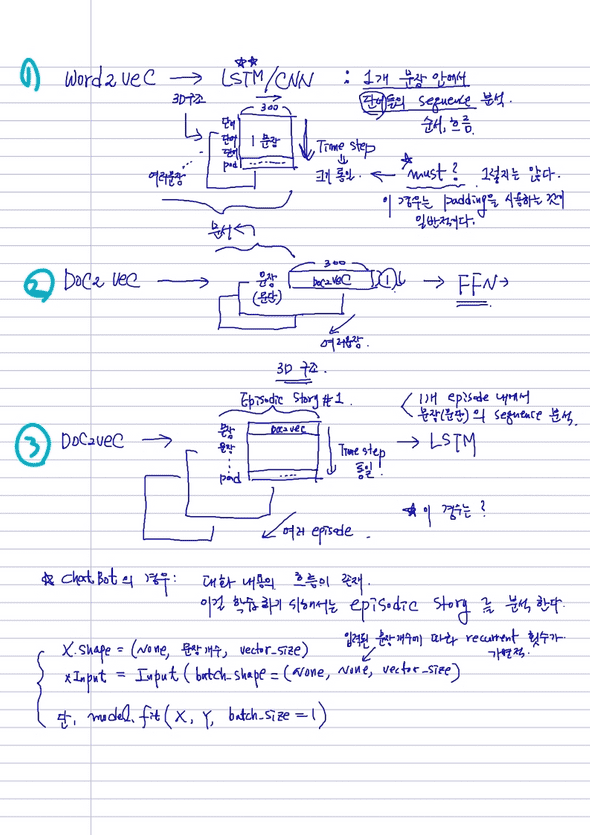 ① Word2Vec → LSTM/CNN : 1개 문장 안에서
단어들의 sequence 분석.
순서, 흐름.
3D구조
300
단어
단어
단어
pad
1 문장
.....
여러문장
Time step
크기 통일. ← must? 그렇지는 않다.
이 경우는 padding을 사용하는 것이
일반적이다.
문서
② Doc2Vec → 문장
(문단)
300
Doc2Vec
1
→ FFN →
여러문장.
3D 구조.
Episodic Story #1.
1개 episode 내에서
문장(문단)의 sequence 분석.
③ Doc2Vec → 문장
문장
pad
Doc2Vec
....
Time step
통일!
→ LSTM
여러 episode.
☆ 이 경우는?
☆ ChatBot의 경우: 대화 내용의 흐름이 존재.
이걸 학습하기 위해서는 episodic story를 분석한다.
X.shape = (None, 문장개수, vector_size)
입력된 문장개수에 따라 recurrent 횟수가
가변적.
xInput = Input(batch_shape = (None, None, vector_size)
단, model.fit(X, Y, batch_size = 1)